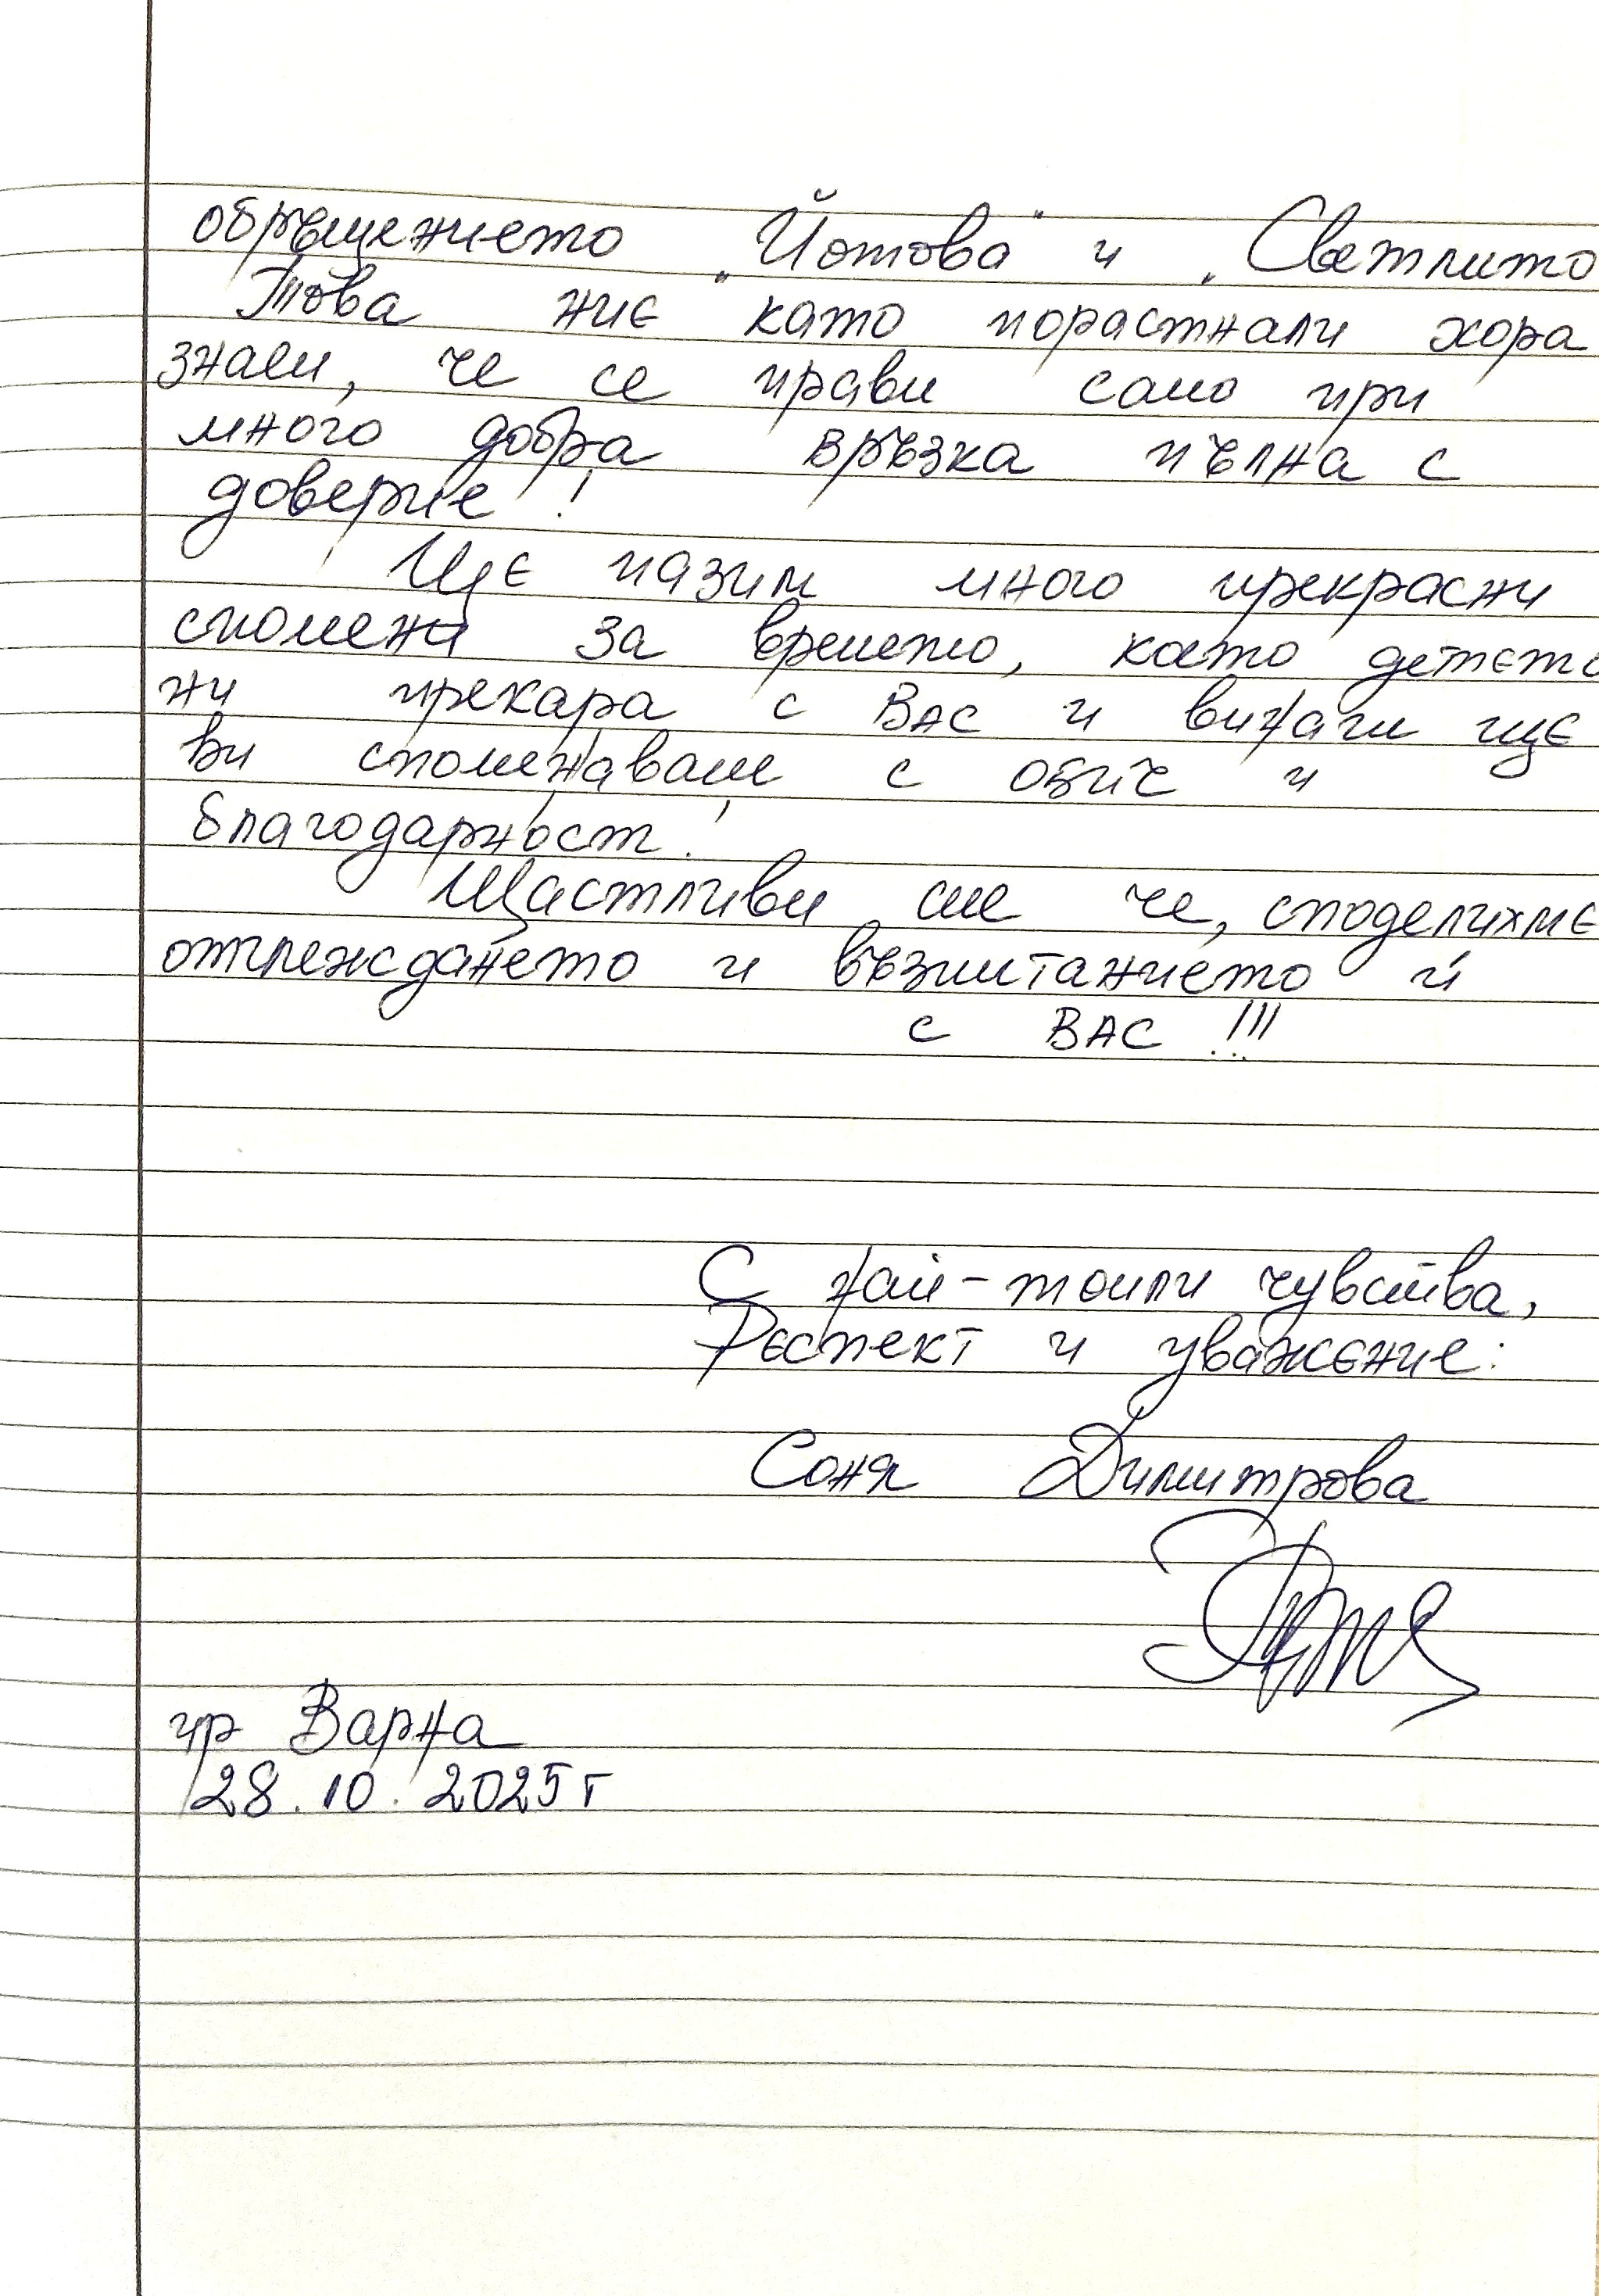 обръщението „Йотова" и „Светлито
Това ние като порастнали хора
знаем, че се прави само при
много добра връзка пълна с
доверие!
Ще пазим много прекрасни
спомени за времето, което детето
ни прекара с ВАС и винаги ще
ви споменаваме с обич и
благодарност!
Щастливи сме че, споделихме
отглеждането и възпитанието ѝ
с ВАС !!!
С най-топли чувства,
Респект и уважение:
Соня Димитрова
гр Варна
28.10.2025г